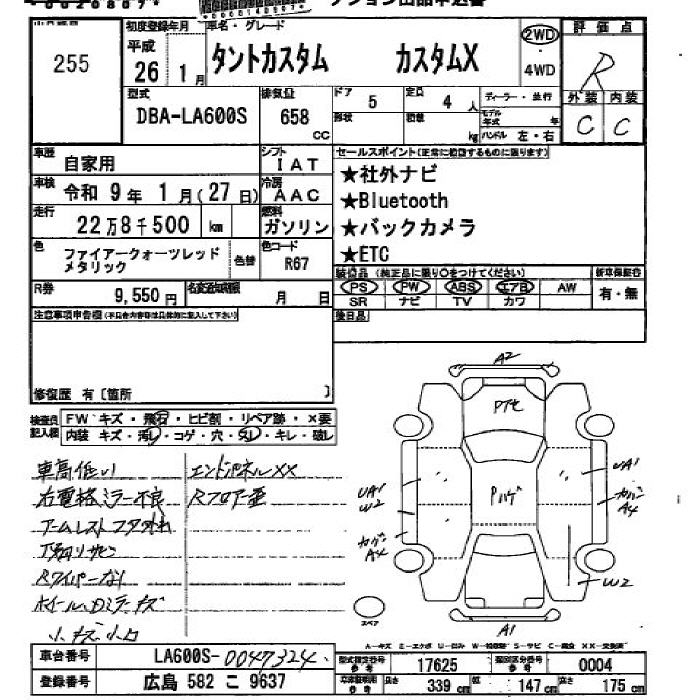 255
初度登録年月
平成
26 1月
車名・グレード
タントカスタム カスタムX
2WD
4WD
評価点
R
外装 内装
C C
型式
DBA-LA600S
排気量
658
CC
ドア 5
定員 4 人
形状
積載 kg
ディーラー・並行
モデル年式 年
ハンドル 左・右
車歴
自家用
シフト
IAT
セールスポイント(正常に稼働するものに限ります)
★社外ナビ
★Bluetooth
★バックカメラ
★ETC
車検
令和 9年 1月(27日)
冷房
AAC
走行
22万8千500 km
燃料
ガソリン
色
ファイアークォーツレッド
メタリック
色替
色コード
R67
装備品 (純正品に限り○をつけてください)
新車保証書
PS PW ABS エアB AW
有・無
SR ナビ TV カワ
R券
9,550円
名変通知期限
月 日
後日品
注意事項申告欄(不具合内容等は具体的に記入して下さい)
修復歴 有〔箇所 〕
検査員
記入欄
FW キズ・飛石・ヒビ割・リペア跡・×要
内装 キズ・汚れ・コゲ・穴・欠し・キレ・破レ
車高低い
右電格ミラー不良
アームレストフタ外れ
下廻りサビ
Rワイパーなし
ホイール、Dミラーキズ
小キズ小凹
エンドパネルXX
Rフロア歪
A2
UA1
W2
カバン
A4
UA1
カバン
A4
W2
A1
スペア
車台番号
LA600S-0047324
登録番号
広島 582 こ 9637
型式指定番号
参考
17625
類別区分番号
参考
0004
長さ 339 cm
幅 147 cm
高さ 175 cm